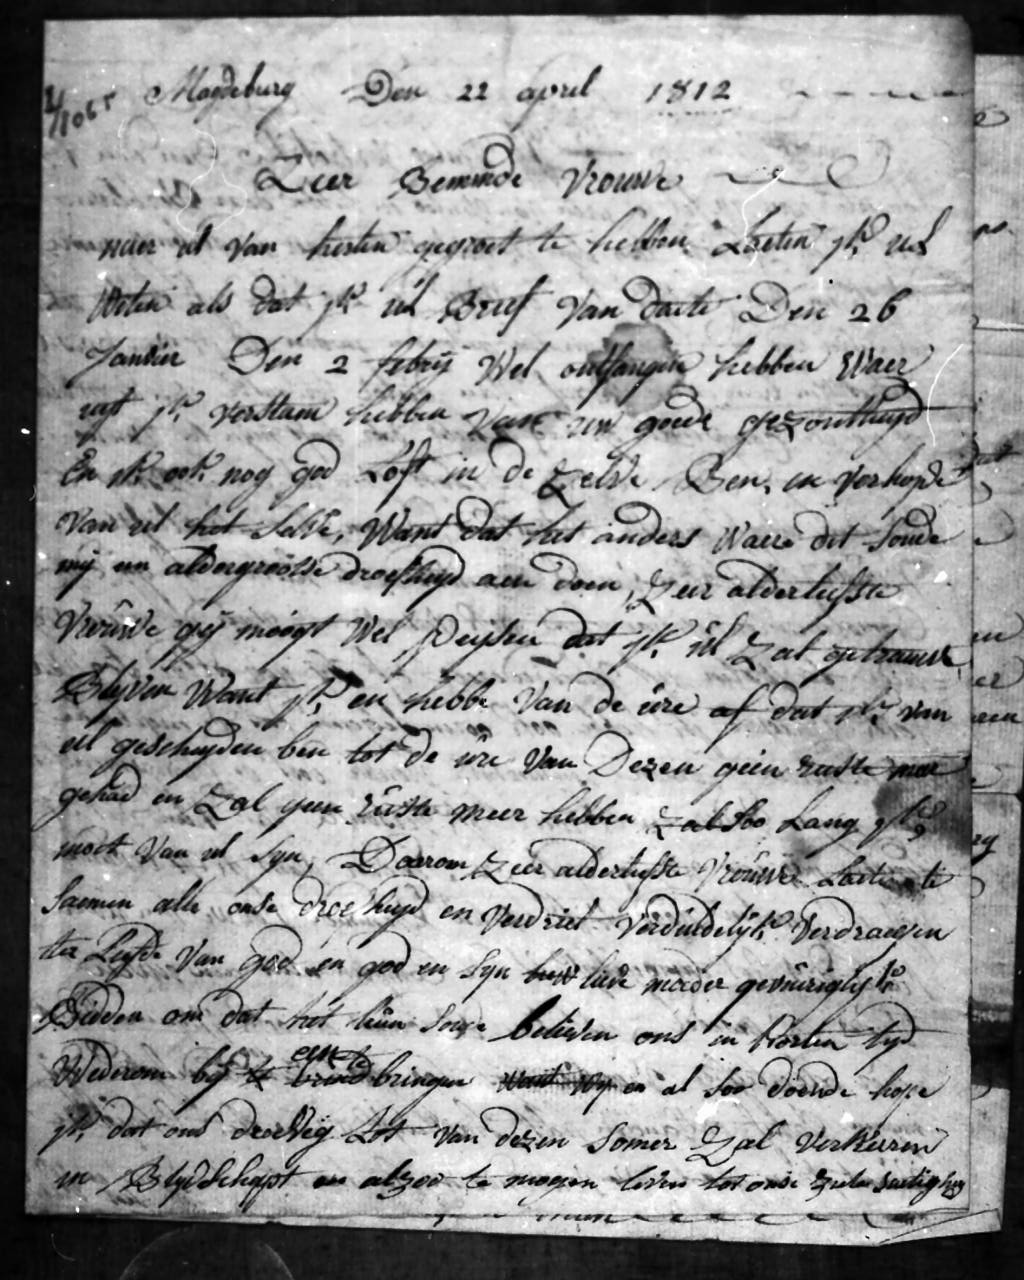 Magdeburg Den 22 april 1812
Zeer Beminde Vrouwe
naer ul van herten gegroet te hebben Laeten yk ul
Weten als dat yk ul Brief Van daete Den 26
Janvier Den 2 febrij Wel ontfangen hebben Waer
uyt yk verstaen hebben Van uw goede gezontheyd
En yk ook nog god Loft in de Zelve Ben, en verhope
Van ul het selve, Want dat het anders Waere dit soude
mij een aldergrootse droefheyd aen doen, Zeer alderliefste
Vrouwe gij moogt Wel Peysen dat yk ul Zal getrauwe
Blyven Want yk en hebbe Van de ure af dat yk van
ul gescheyden ben tot de ure Van Dezen geen ruste meer
gehad en Zal geen ruste meer hebben Zal soo Lang yk
moet Van ul syn, Daerom Zeer alderliefste Vrouwe Laete te
saemen alle onse droefheyd en Verdriet Verduldelyk Verdraegen
ter Liefde Van god en god en syn lieve moeder geduriglyk
Bidden om dat het hun soude believen ons in korten tyd
Wederom by een bringen en al soo doende hope
yk dat ons droevig Lot Van dezen somer Zal Verkeeren
in Blydschapt en alzoo te mogen leven tot onse ziele